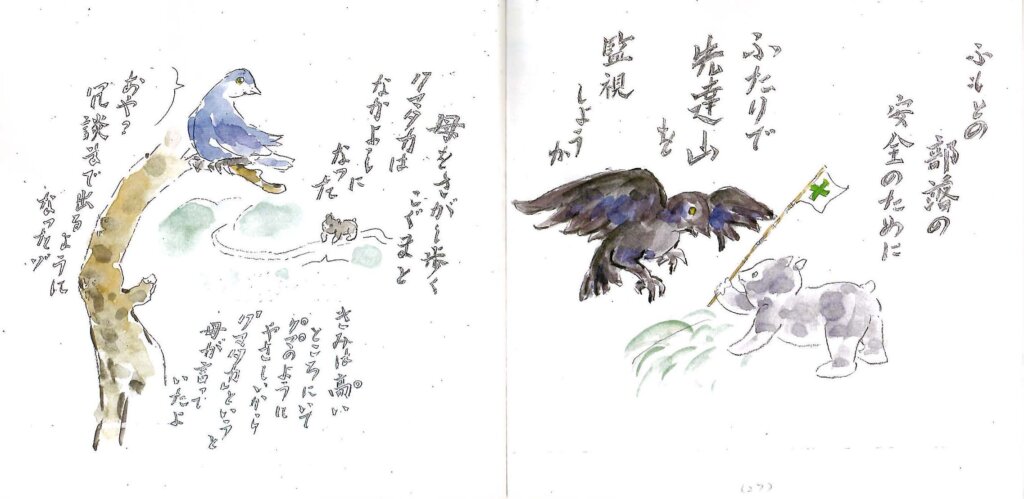 ふもとの
部落の
安全のために
ふたりで
先達山を
監視
しようか
(27)
母をさがし歩く
こぐまと
クマタカは
なかよしに
なった
きみは高い
ところにいて
クマのように
やさしいから
クマタカという
母が言って
いたよ
おや?
冗談まで出るように
なったゾ